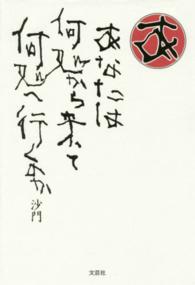 あなたは
何処から来て
何処へ行くか
沙門
文芸社